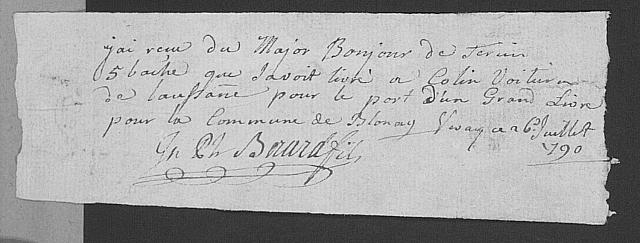 j'ai reçu du Major Bonjour de
5 bache que j'avoit livré a Colin Voiturn
de laussane pour le port d'un Grand Livre
pour la Commune de Blonay Vevay ce 26 Juillet
1790
Jn Ph fils